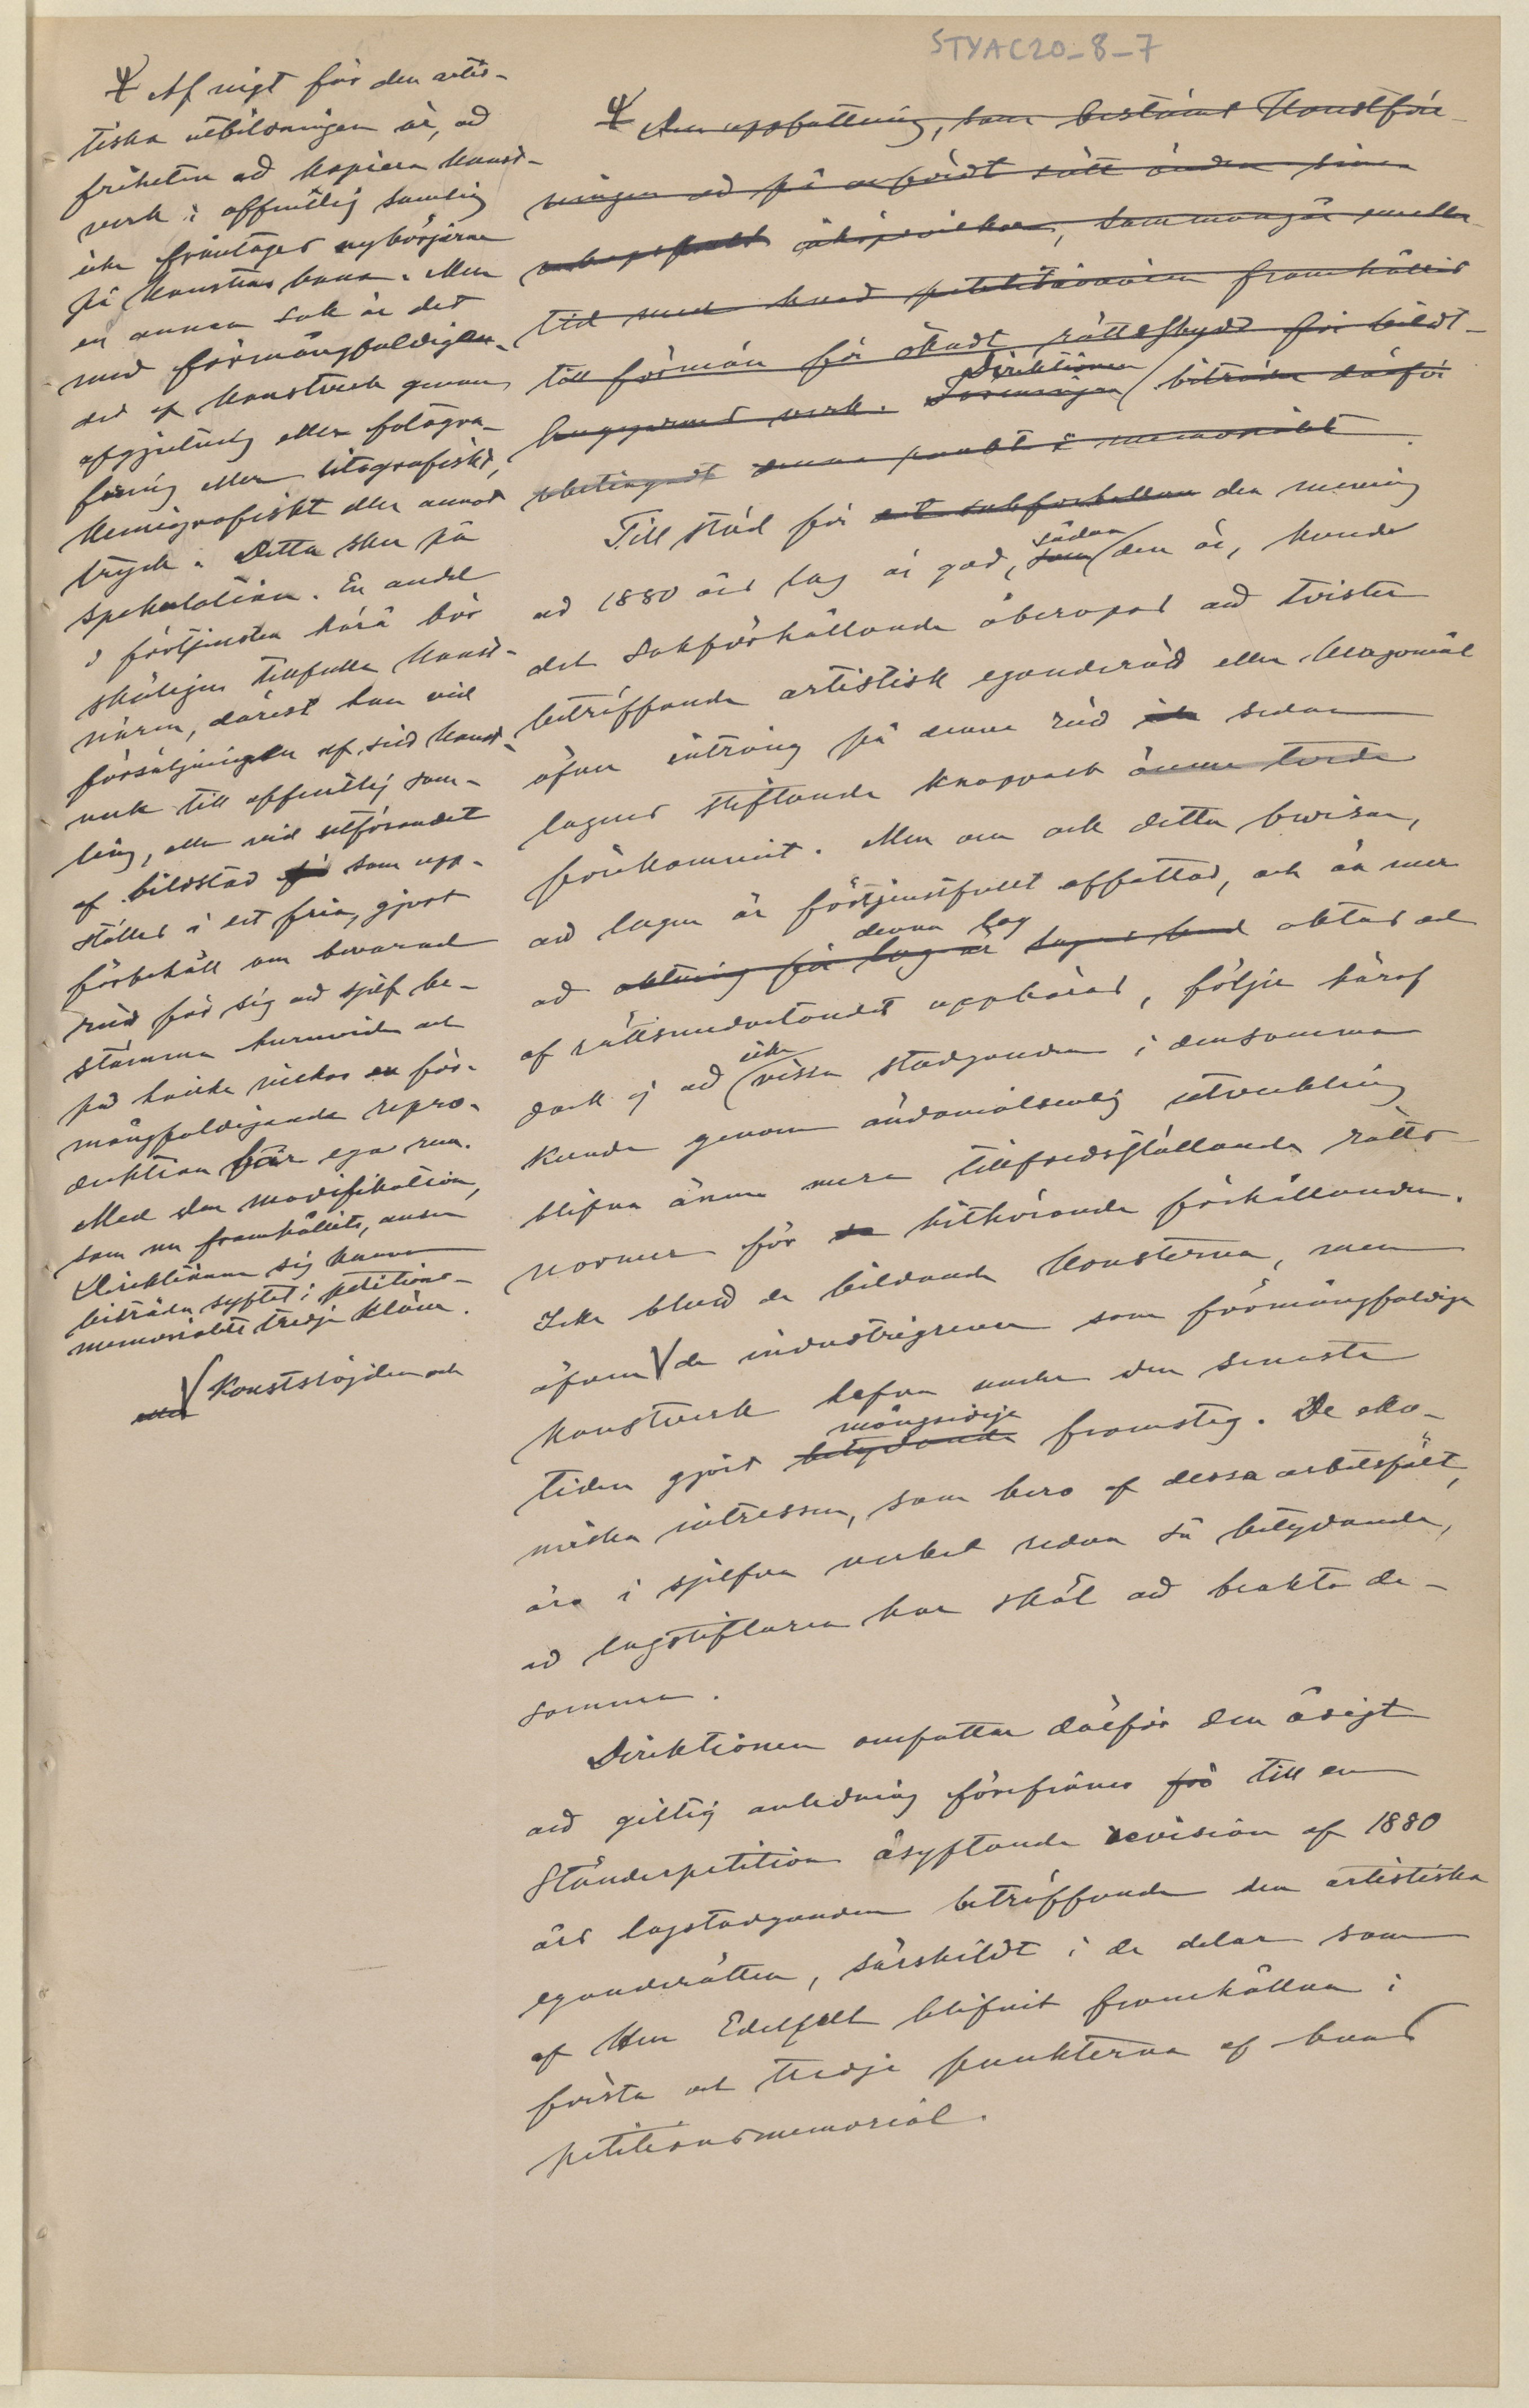 STYAC20_8_7
Af vigt för den artis-
tiska utbildningen är, att
friheten att kopiera konst-
verk i offentlig samling
icke fråntages nybörjaren
på konstens bana. Men
en annan sak är det
med förmångfaldigan-
det af konstverk genom
afgjutning eller fotogra-
fering eller litografiskt,
kemigrafiskt eller annat
tryck. Detta sker på
spekulation. En andel
i förtjensten härå bör
skäligen tillfalla konst-
nären, därest han vid
försäljningen af sitt konst-
verk till offentlig sam-
ling, eller vid utförandet
af bildstod för som upp-
ställes i det fria, gjort
förbehåll om bevarad
rätt för sig att sjelf be-
stämma huruvida och
på hvilka vilkor en för-
mångfaldigande repro-
duktion får ega rum.
Med den modifikation,
som nu framhållits, anser
Direktionen sig kunna
biträda syftet i petitions-
memorialets tredje kläm.
Konstslöjden och
Den uppfattning, som bestämt Konstföre-
ningen att på antydt sätt ändra sina
inköpsvilkor, sammangår emeller-
tid med hvad petitionären framhållit
till förmån för ökadt rättsskydd för bildt-
huggarens verk. Föreningen Direktionen biträder därför
obetingadt denna punkt i memorialet.
Till stöd för det sakförhållan den mening
att 1880 års lag är god, som sådan den är, kunde
det sakförhållande åberopas att tvister
beträffande artistisk eganderätt eller klagomål
öfver intrång på denna rätt sedan
lagens stiftande knappast ännu torde
förekommit. Men om ock detta bevisar,
att lagen är förtjenstfullt affattad, och än mer
att aktning för lag är denna lag aktas och
af rättsmedvetandet uppbäres, följer häraf
dock ej att icke vissa stadganden i densamma
kunde genom ändamålsenlig utveckling
blifva ännu mera tillfredsställande rätts-
normer för de hithörande förhållanden.
Icke blott de bildande konsterna, men
äfven de industrigrenar som förmångfaldiga
konstverk hafva under den senaste
tiden gjort betydande mångsidiga framsteg. De eko-
nomiska intressen, som bero af dessa arbetsfält,
äro i sjelfva verket redan så betydande,
att lagstiftaren har skäl att beakta de-
samma.
Direktionen omfattar därför den åsigt
att giltig anledning förefinnes för till en
Ständerpetition åsyftande revision af 1880
års lagstadganden beträffande den artistiska
eganderätten, särskildt i de delar som
af Herr Edelfelt blifvit framhållna i
första och tredje punkterna af hans
petitionsmemorial.